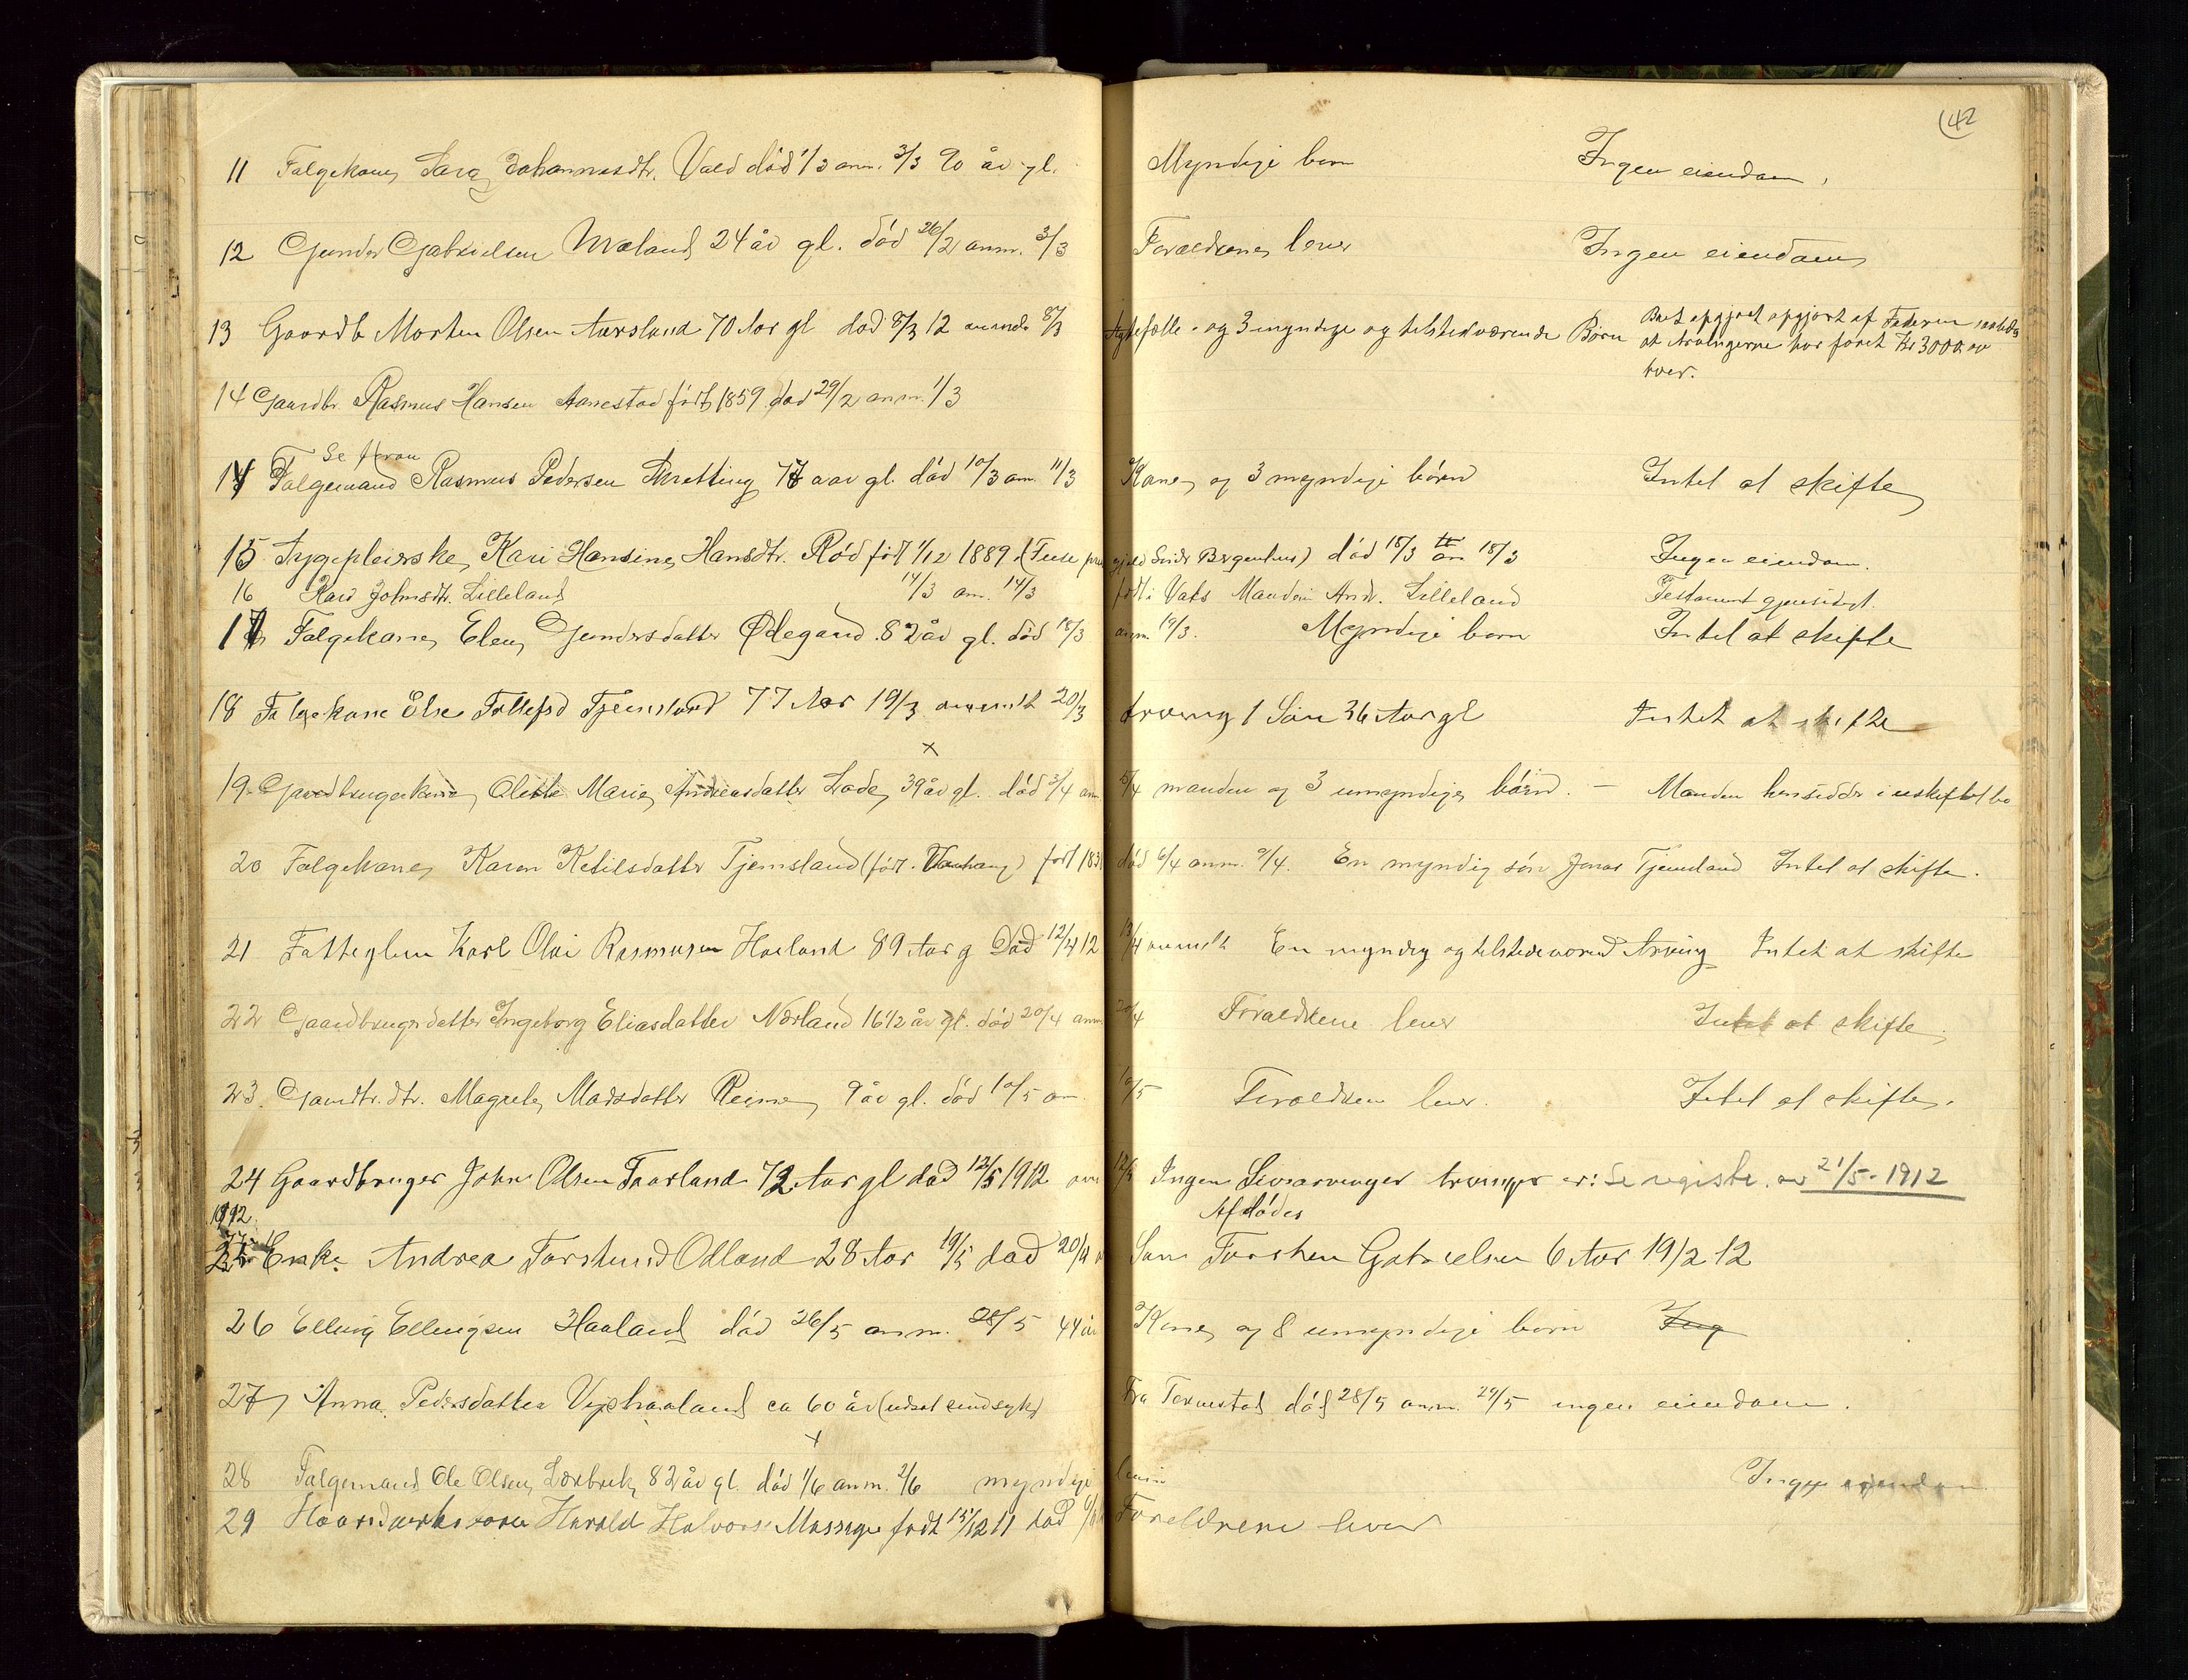 42
11 Folgekone Sara Johannesdtr. Vold død 1/3 anm. 3/3 90 år gl. Myndige børn Ingen eiendom.
12 Gunder Gabrielsen 24 år gl. død 26/2 anm. 3/3 Forældrene lever Ingen eiendom
13 Gaardb Morten Olsen Aarsland 70 Aar gl død 8/3 12 anmeldt 8/3 Ægtefælle og 3 myndige og tilstedværende Børn
Boet opgjort af Faderen
at Arvingerne har faaet Kr 3000
hver.
14 Gaardbr. Rasmus Hansen Aanestad født 1859 død 29/2 anm. 1/3
Se foran
14 Folgemand Rasmus Pedersen Thretting 77 aar gl. død 10/3 am. 11/3 Kone og 3 myndige børn Intet at skifte
15 Sygepleierske Kari Hansine Hansdtr. Rød født 1/12 1889 (Fuse præstegjeld Søndr Bergenhus) død 18/3 an 18/3 Ingen eiendom.
16 Kari Johnsdtr. Lilleland 14/3 am. 14/3 født i Vats Manden Andr. Lilleland Testament gjensidigt.
17 Folgekone Elen Gundersdatter Ødegaard 82 år gl. død 18/3 anm. 19/3. Myndige børn Intet at skifte
18 Folgekone Else Tollefsd Tjemsland 77 Aar 19/3 anmeldt 20/3 Arving 1 Søn 36 Aar gl Intet at skifte
x
19 Gaardbrugerkone Olette Marie Andreasdatter Lode 39 år gl. død 3/4 anm 5/4 manden og 3 umyndige børn. – Manden hensidder i uskiftet bo
20 Folgekone Karen Ketilsdatter Tjemsland (født Varhaug) født 183 død 6/4 anm. 9/4. En myndig søn Jonas Tjemsland Intet at skifte.
21 Fattiglem Karl Olai Rasmusen Haaland 89 Aar g Død 12/4 12 13/4 anmelt En myndig og tilstedeværend Arving Intet at skifte
22 Gaardbrugerdatter Ingeborg Eliasdatter Nærland 16 1/2 år gl. død 20/4 anm 20/4 Forældrene lever Intet at skifte.
23. Gaardbr. dtr. Magrete Madsdatter Reime 9 år gl. død 10/5 an 10/5 Forældrene lever. Intet at skifte.
24 Gaardbruger John Olsen Taarland 72 Aar gl død 12/5 1912 12/5 Ingen Livsarvinger Arvinger er: Se registr. av 21/5 - 1912
1912. Afdødes
25 Enke Andrea Torstensd Odland 28 Aar 19/5 død 20/ Søn Torsten Gabrielsen 6 Aar 19/2 12
26 Elling Ellingsen Haaland død 26/5 anm. 28/5 44 år Kone og 8 umyndige børn Ing
27 Anna Pedersdatter Vigshaaland ca 60 år (udsat sindssyk) Fra død 28/5 anm. 29/5 ingen eiendom.
x
28 Folgemand Ole Olsen Lærbrek 82 år gl. død 1/6 anm. 2/6 myndige børn Ingen eiendom
29 Haandverkssøn Harald Halvors. Mossige født 15/12 11 død Forældrene lever